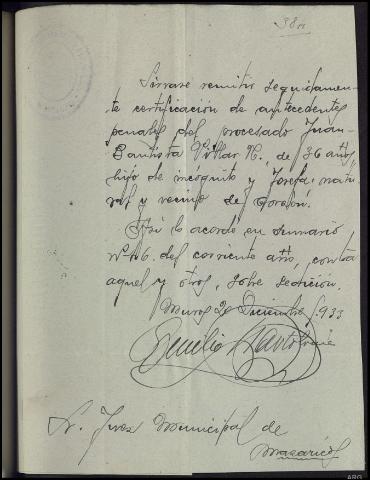 Sírvase remitir seguidamen-
te certificación de antecedentes
penales del procesado Juan
Bautista Villar de 36 años,
hijo de incógnito y Josefa, natu-
ral y vecino de
Así lo acordé en sumario
nº del corriente año, contra
aquel y otros, sobre sedición.
Muros Diciembre 1933
Sr. Juez Municipal de
Mazaricos
ARG